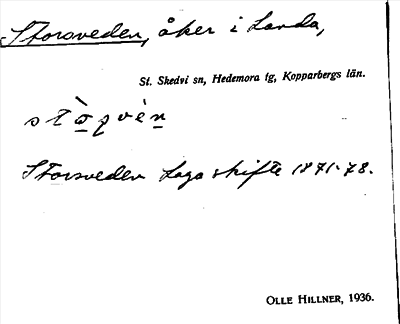 Storsveden, åker i Landa,
St. Skedvi sn, Hedemora tg, Kopparbergs län.
Storsveden Laga skifte 1871-78.
OLLE HILLNER, 1936.